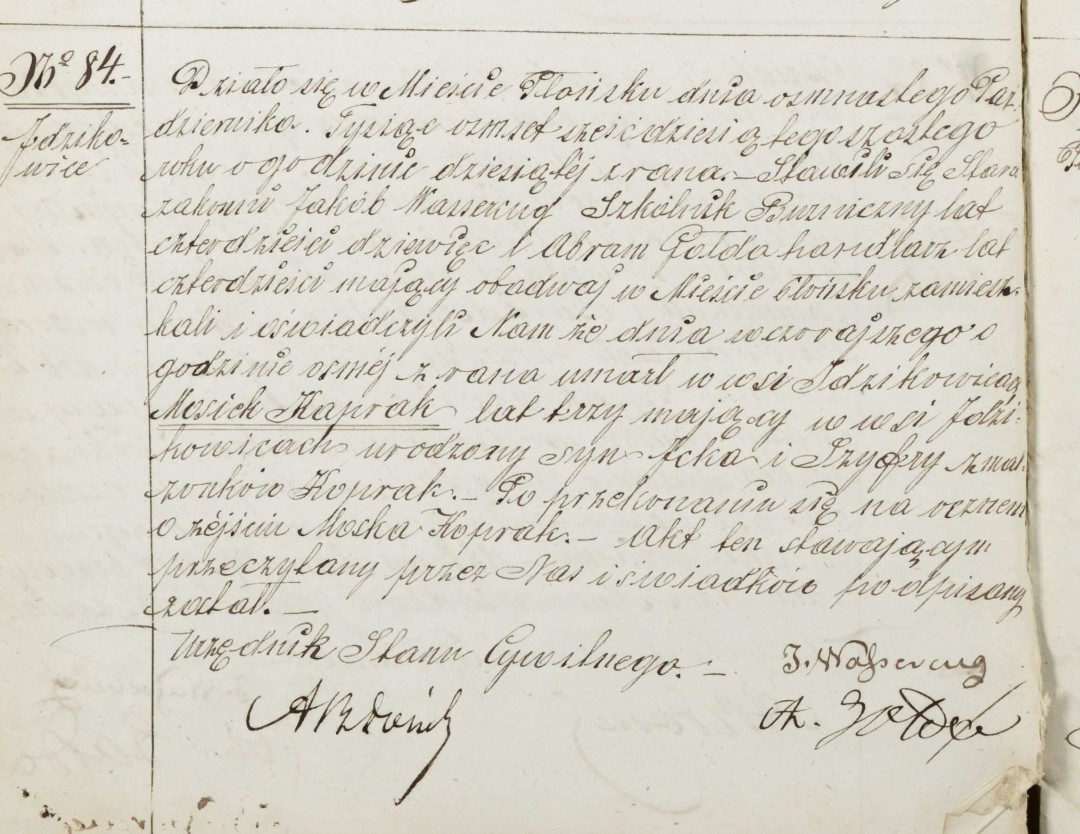 No 84.-
Jdziko-
wice
Działo się w Mieście Płońsku dnia osmnastego Paź
dziernika. Tysiąc osmset sześćdziesiątego szostego
roku o godzinie dziesiątéj z rana. – Stawili się Staro
zakonni Jakób Wassercug Szkolnik Bużniczny lat
czterdzieści dziewięc i Abram Gołda handlarz lat
czterdzieści mający obadwaj w Mieście Płońsku zamiesz-
kali i oświadczyli Nam że dnia wczorajszego o
godzinie osméj z rana umarł w wsi Idzikowicach
Mosiek Koprak lat trzy mający w wsi Jdzi-
kowicach urodzony syn Jcka i Szyfry z mał-
żonków Koprak. – Po przekonaniu się na ocznem
o zéjściu Moska Koprak. – Akt ten stawającym
przeczytany przez Nas i świadków podpisany
został. –
Urzędnik Stanu Cywilnego. –
J. Wasserzug
A.